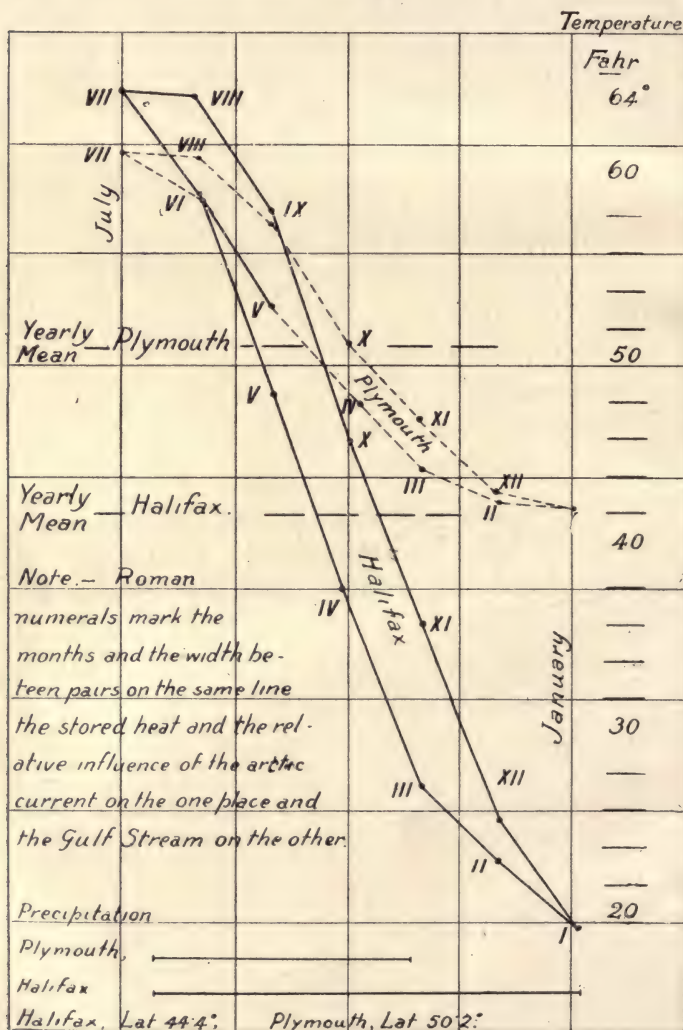 Temperature
Fahr
64°
VII
VIII
VII
VIII
60
July
VI
IX
V
Yearly
Mean
Plymouth
X
50
V
IV
Plymouth
XI
X
III
XII
II
Yearly
Mean
Halifax.
40
Note.- Roman
numerals mark the
months and the width be-
teen pairs on the same line
the stored heat and the rel-
ative influence of the arctic
current on the one place and
the Gulf Stream on the other.
IV
Halifax
XI
January
30
III
XII
II
20
I
Precipitation
Plymouth,
Halifax
Halifax, Lat 44·4°; Plymouth, Lat 50·2°